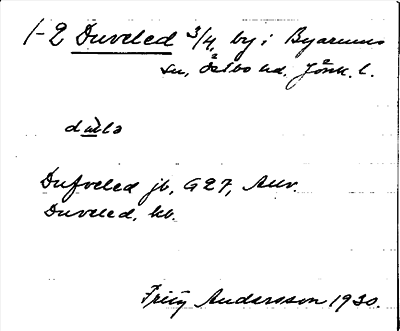 1-2 Duveled 3/4, by i Byarums
sn, Östbo hd. Jönk. l.
dùvlə
Dufveled jb, G27, Anv.
Duveled, kb.
Fritz Andersson 1930.